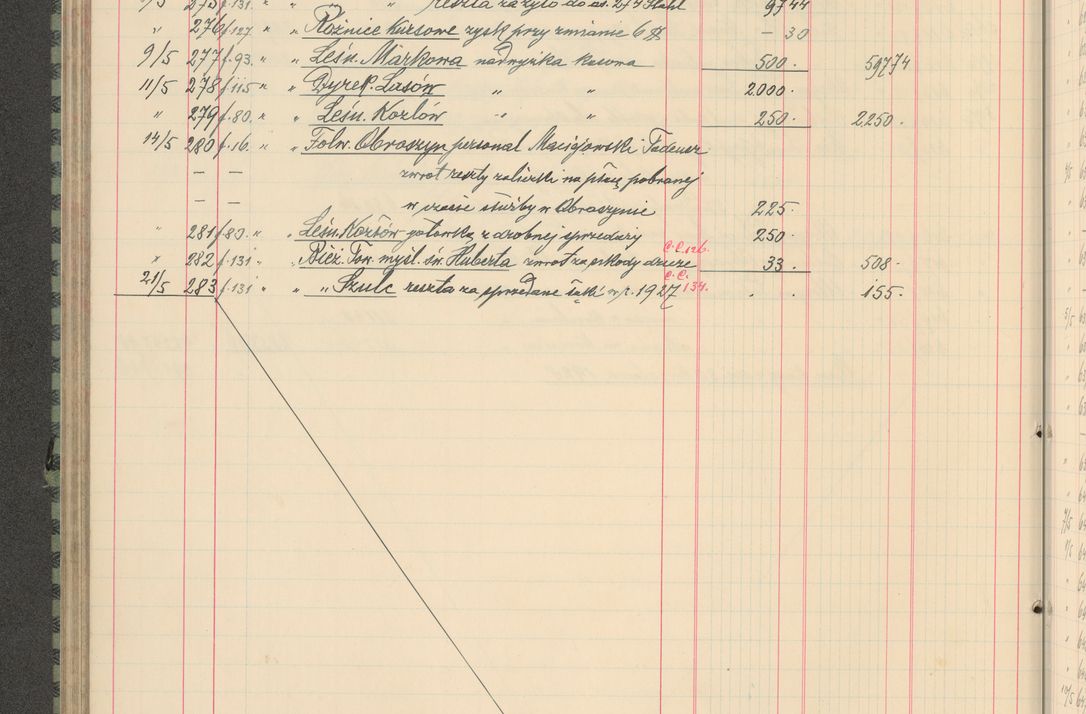 275 f.131. " " reszta za żyto do as. 274 9744
" 276 f.127. " " Różnice Kursowe zysk przy zmianie 6 $ – 30
9/5 277 f.93. " " Leśn. Markowa nadwyżka kasowa 500. 59774
11/5 278 f.115 " " Dyrek. Lasów " " 2000.
" 279 f.80. " " Leśn. Kozłów " " 250. 2250.
14/5 280 f.16. " " Folw. Obroszyn personal Maciejowski Tadeusz
– – zwrot reszty zaliczki na płacę pobranej
– – w czasie służby w Obroszynie 225.
" 281 f.80. " " Leśn. Kozłów gotówką z drobnej sprzedaży 250.
C.C.126.
" 282 f.131 " " Bież. Tow. myśl. św. Huberta zwrot za szkody 33. 508.
C.C.
21/5 283 f.131 " " " Szulc reszta za sprzedane w r. 1927 134. . . 155.